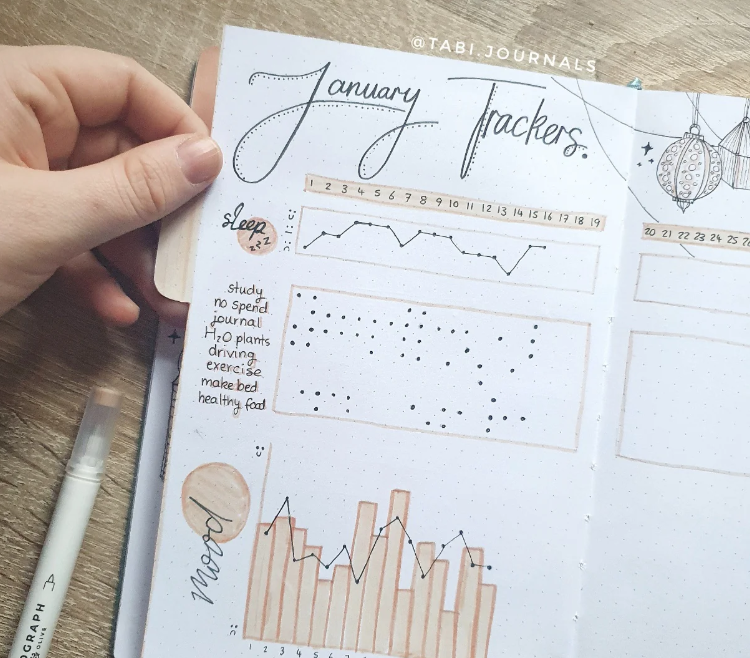 @TABI.JOURNALS
January Trackers.
1 2 3 4 5 6 7 8 9 10 11 12 13 14 15 16 17 18 19
20 21 22 23 24 25
sleep
zzz
): |: c:
study
no spend
journal
H₂O plants
driving
exercise
make bed
healthy food
c:
mood
):
1 2 3 4 5 6 7 8 9 10 11 12
A
OGRAPH
OLIVE